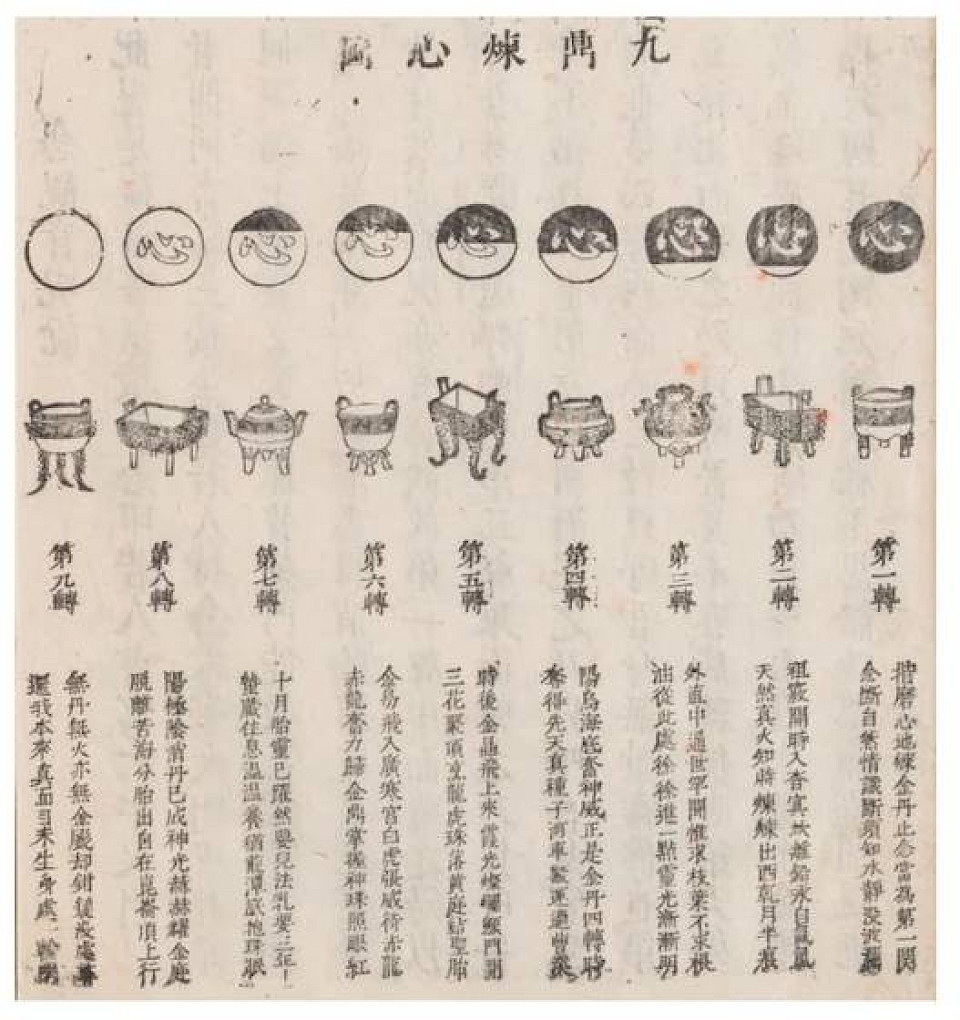 九鼎煉心圖
心
心
心
心
心
心
心
心
第一轉
磨心地煉金丹止念當為第一関
念断自然情識断須知水靜没波瀾
第二轉
祖竅開時入杳冥坎離鉛汞自氤氳
天然真火知時煉煉出西乾月半痕
第三轉
外直中通世罕聞惟求枝葉不求根
油從此處徐徐進一點靈光漸漸明
第四轉
陽烏海底奮神威正是金丹四轉時
奪得先天真種子河車緊運過曹溪
第五轉
時後金晶飛上來霞光燦爛門開
三花聚頂生龍虎珠落黃庭結聖胎
第六轉
金飛入廣寒宮白虎張威待赤龍
赤龍奮力歸金鼎掌握神珠照眼紅
第七轉
十月胎靈已躍然嬰兒法乳要三年
蟄藏住息溫溫養猶龍潭底抱珠眠
第八轉
陽極陰消丹已成神光赫赫耀金庭
脫離苦海分胎出自在崑崙頂上行
第九轉
無丹無火亦無金脫却鉗鎚没處尋
還我本來真面目未生身處一輪明